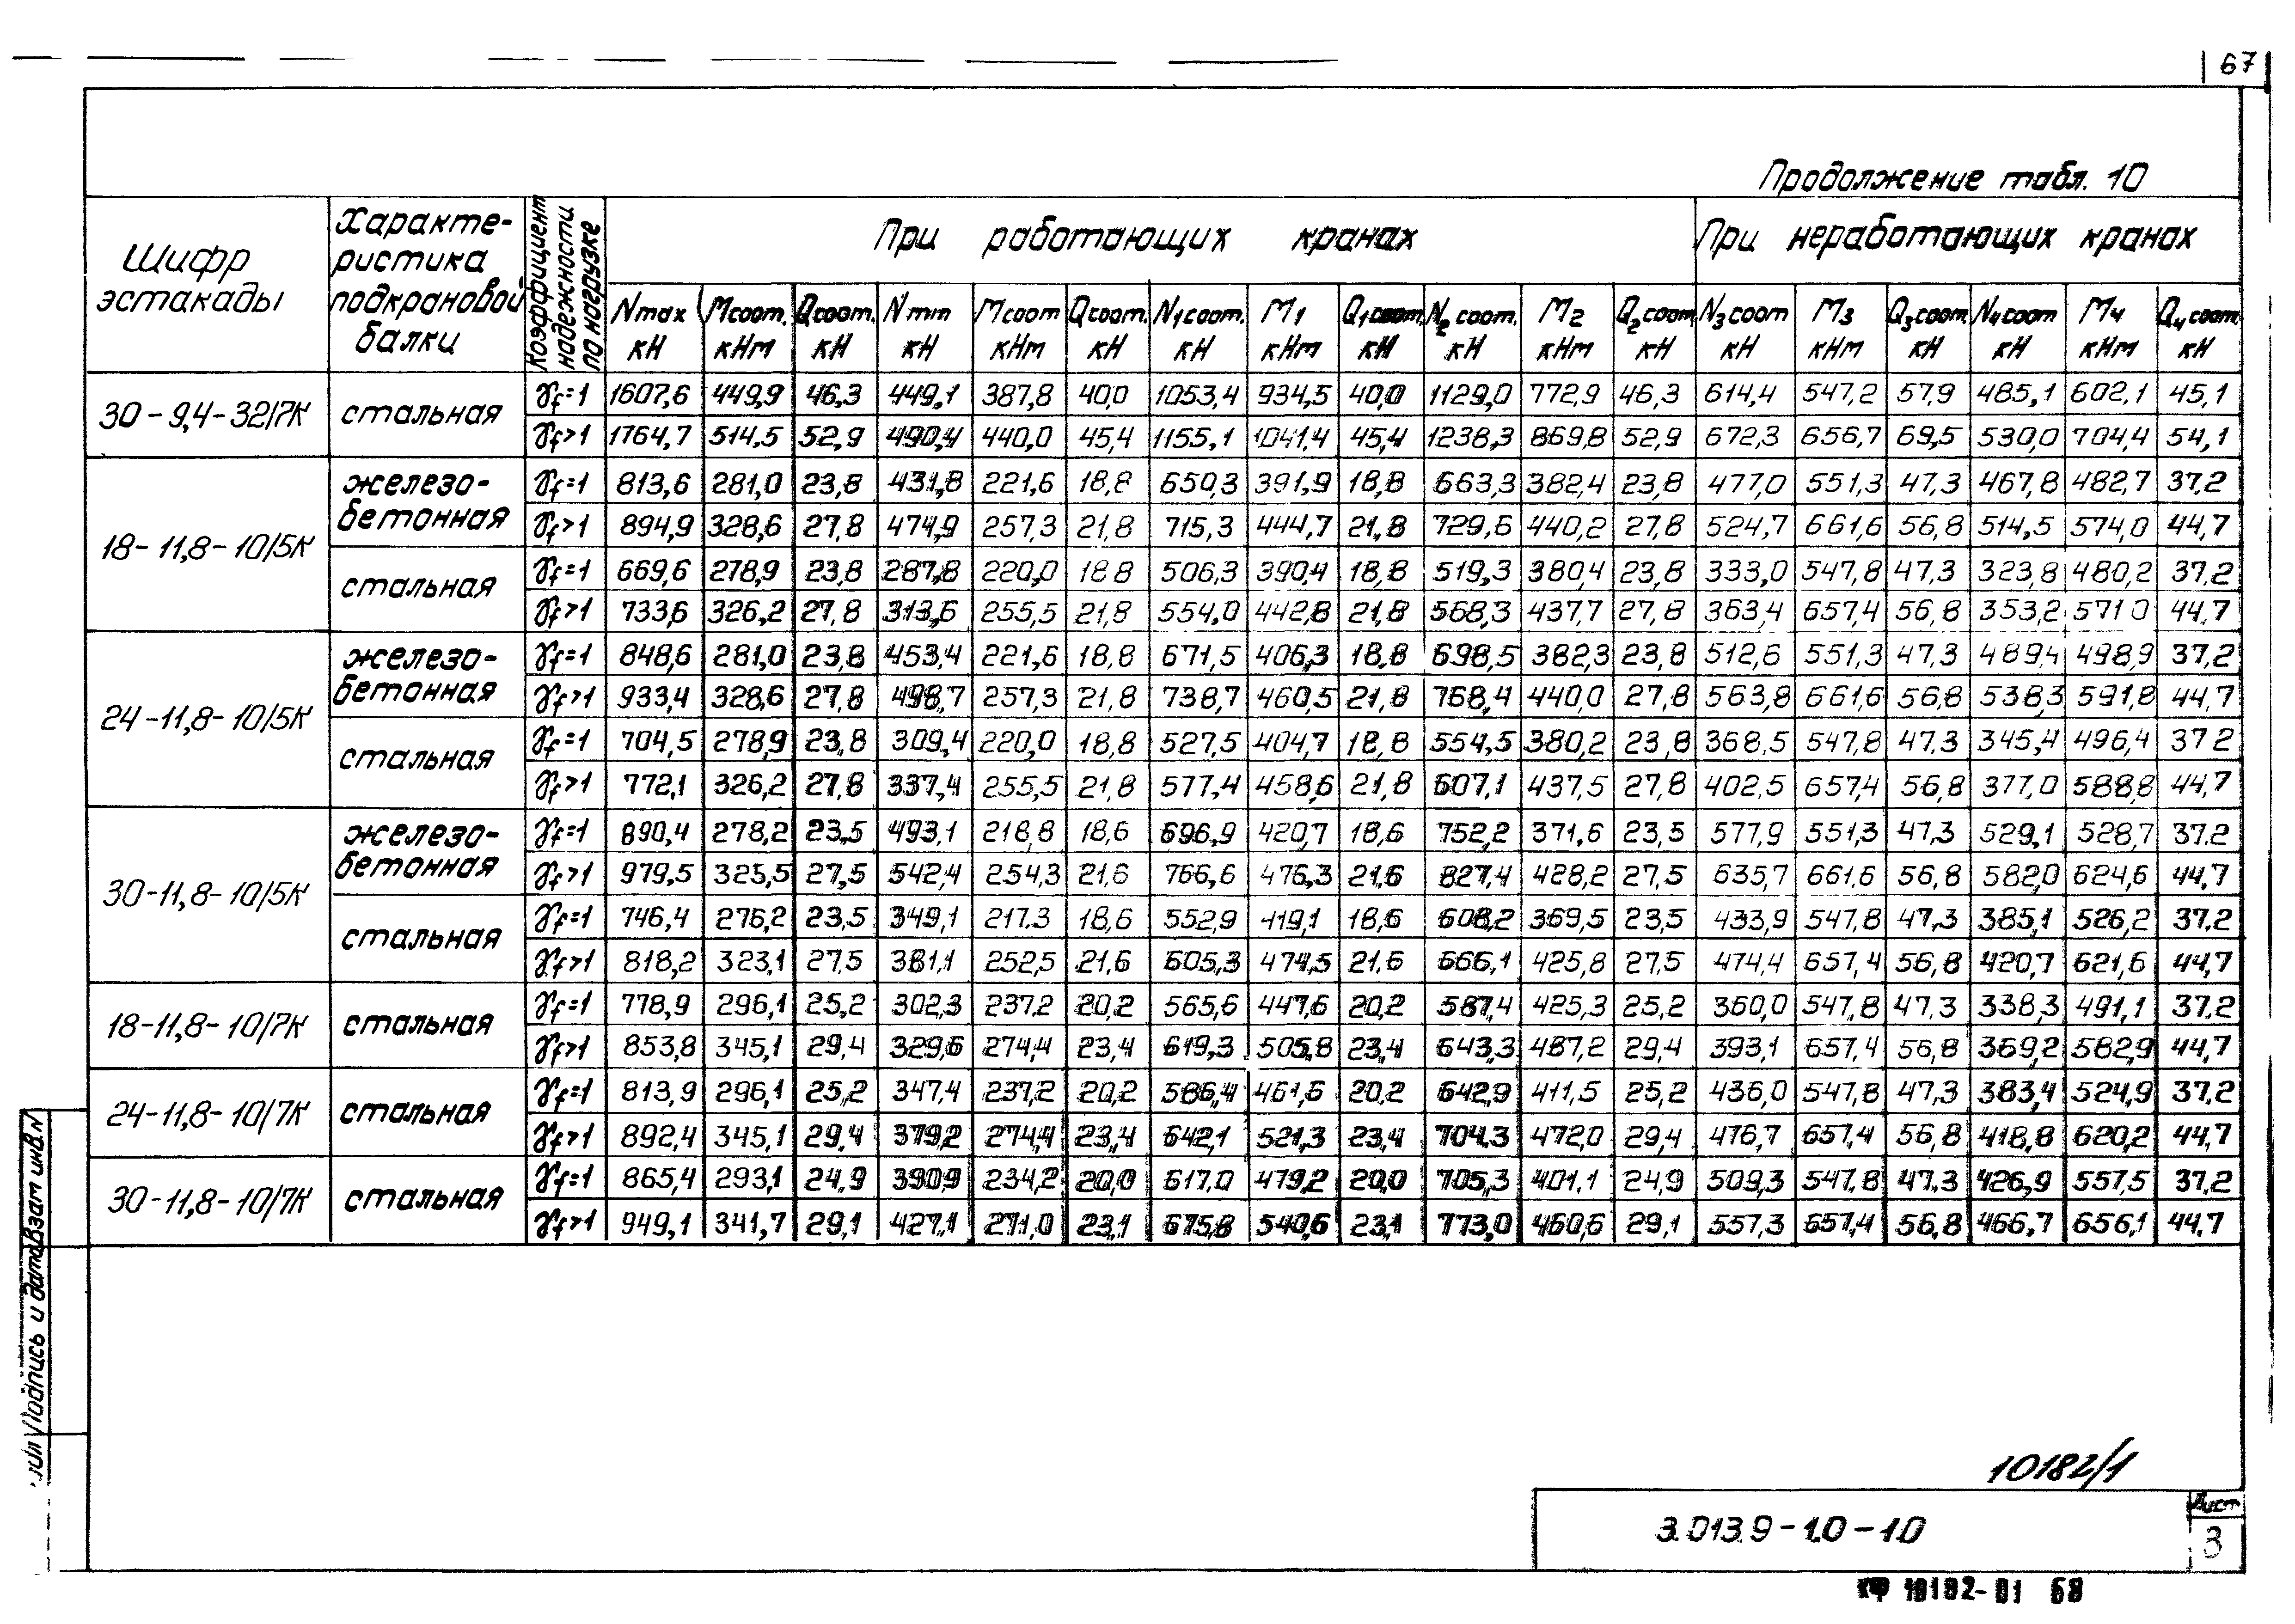 67
Продолжение табл. 10
Шифр эстакады
Характеристика подкрановой балки
Коэффициент надежности по нагрузке
При работающих кранах
При неработающих кранах
Nmax кН Mсоот. кНм Qсоот. кН Nmin кН Mсоот кНм Qсоот. кН N1соот. кН M1 кНм Q1соот. кН N2соот. кН M2 кНм Q2соот кН N3соот кН M3 кНм Q3соот. кН N4соот кН M4 кНм Q4соот. кН
30-9,4-32/7К стальная γf=1 1607,6 449,9 46,3 449,1 387,8 40,0 1053,4 934,5 40,0 1129,0 772,9 46,3 614,4 547,2 57,9 485,1 602,1 45,1
γf>1 1764,7 514,5 52,9 490,4 440,0 45,4 1155,1 1041,4 45,4 1238,3 869,8 52,9 672,3 656,7 69,5 530,0 704,4 54,1
18-11,8-10/5К железобетонная γf=1 813,6 281,0 23,8 431,8 221,6 18,8 650,3 391,9 18,8 663,3 382,4 23,8 477,0 551,3 47,3 467,8 482,7 37,2
γf>1 894,9 328,6 27,8 474,9 257,3 21,8 715,3 444,7 21,8 729,6 440,2 27,8 524,7 661,6 56,8 514,5 574,0 44,7
стальная γf=1 669,6 278,9 23,8 287,8 220,0 18,8 506,3 390,4 18,8 519,3 380,4 23,8 333,0 547,8 47,3 323,8 480,2 37,2
γf>1 733,6 326,2 27,8 313,6 255,5 21,8 554,0 442,8 21,8 568,3 437,7 27,8 363,4 657,4 56,8 353,2 571,0 44,7
24-11,8-10/5К железобетонная γf=1 848,6 281,0 23,8 453,4 221,6 18,8 671,5 406,3 18,8 698,5 382,3 23,8 512,6 551,3 47,3 489,4 498,9 37,2
γf>1 933,4 328,6 27,8 498,7 257,3 21,8 738,7 460,5 21,8 768,4 440,0 27,8 563,8 661,6 56,8 538,3 591,8 44,7
стальная γf=1 704,5 278,9 23,8 309,4 220,0 18,8 527,5 404,7 18,8 554,5 380,2 23,8 368,5 547,8 47,3 345,4 496,4 37,2
γf>1 772,1 326,2 27,8 337,4 255,5 21,8 577,4 458,6 21,8 607,1 437,5 27,8 402,5 657,4 56,8 377,0 588,8 44,7
30-11,8-10/5К железобетонная γf=1 890,4 278,2 23,5 493,1 218,8 18,6 696,9 420,7 18,6 752,2 371,6 23,5 577,9 551,3 47,3 529,1 528,7 37,2
γf>1 979,5 325,5 27,5 542,4 254,3 21,6 766,6 476,3 21,6 827,4 428,2 27,5 635,7 661,6 56,8 582,0 624,6 44,7
стальная γf=1 746,4 276,2 23,5 349,1 217,3 18,6 552,9 419,1 18,6 608,2 369,5 23,5 433,9 547,8 47,3 385,1 526,2 37,2
γf>1 818,2 323,1 27,5 381,1 252,5 21,6 605,3 474,5 21,6 666,1 425,8 27,5 474,4 657,4 56,8 420,7 621,6 44,7
18-11,8-10/7К стальная γf=1 778,9 296,1 25,2 302,3 237,2 20,2 565,6 447,6 20,2 587,4 425,3 25,2 360,0 547,8 47,3 338,3 491,1 37,2
γf>1 853,8 345,1 29,4 329,6 274,4 23,4 619,3 505,8 23,4 643,3 487,2 29,4 393,1 657,4 56,8 369,2 582,9 44,7
24-11,8-10/7К стальная γf=1 813,9 296,1 25,2 347,4 237,2 20,2 586,4 461,6 20,2 642,9 411,5 25,2 436,0 547,8 47,3 383,4 524,9 37,2
γf>1 892,4 345,1 29,4 379,2 274,4 23,4 642,1 521,3 23,4 704,3 472,0 29,4 476,7 657,4 56,8 418,8 620,2 44,7
30-11,8-10/7К стальная γf=1 865,4 293,1 24,9 390,9 234,2 20,0 617,0 479,2 20,0 705,3 401,1 24,9 509,3 547,8 47,3 426,9 557,5 37,2
γf>1 949,1 341,7 29,1 427,1 271,0 23,1 675,8 540,6 23,1 773,0 460,6 29,1 557,3 657,4 56,8 466,7 656,1 44,7
Подпись и дата Взам инв.N
10182/1
3.013.9-1.0-10
Лист
3
КФ 10182-01 68